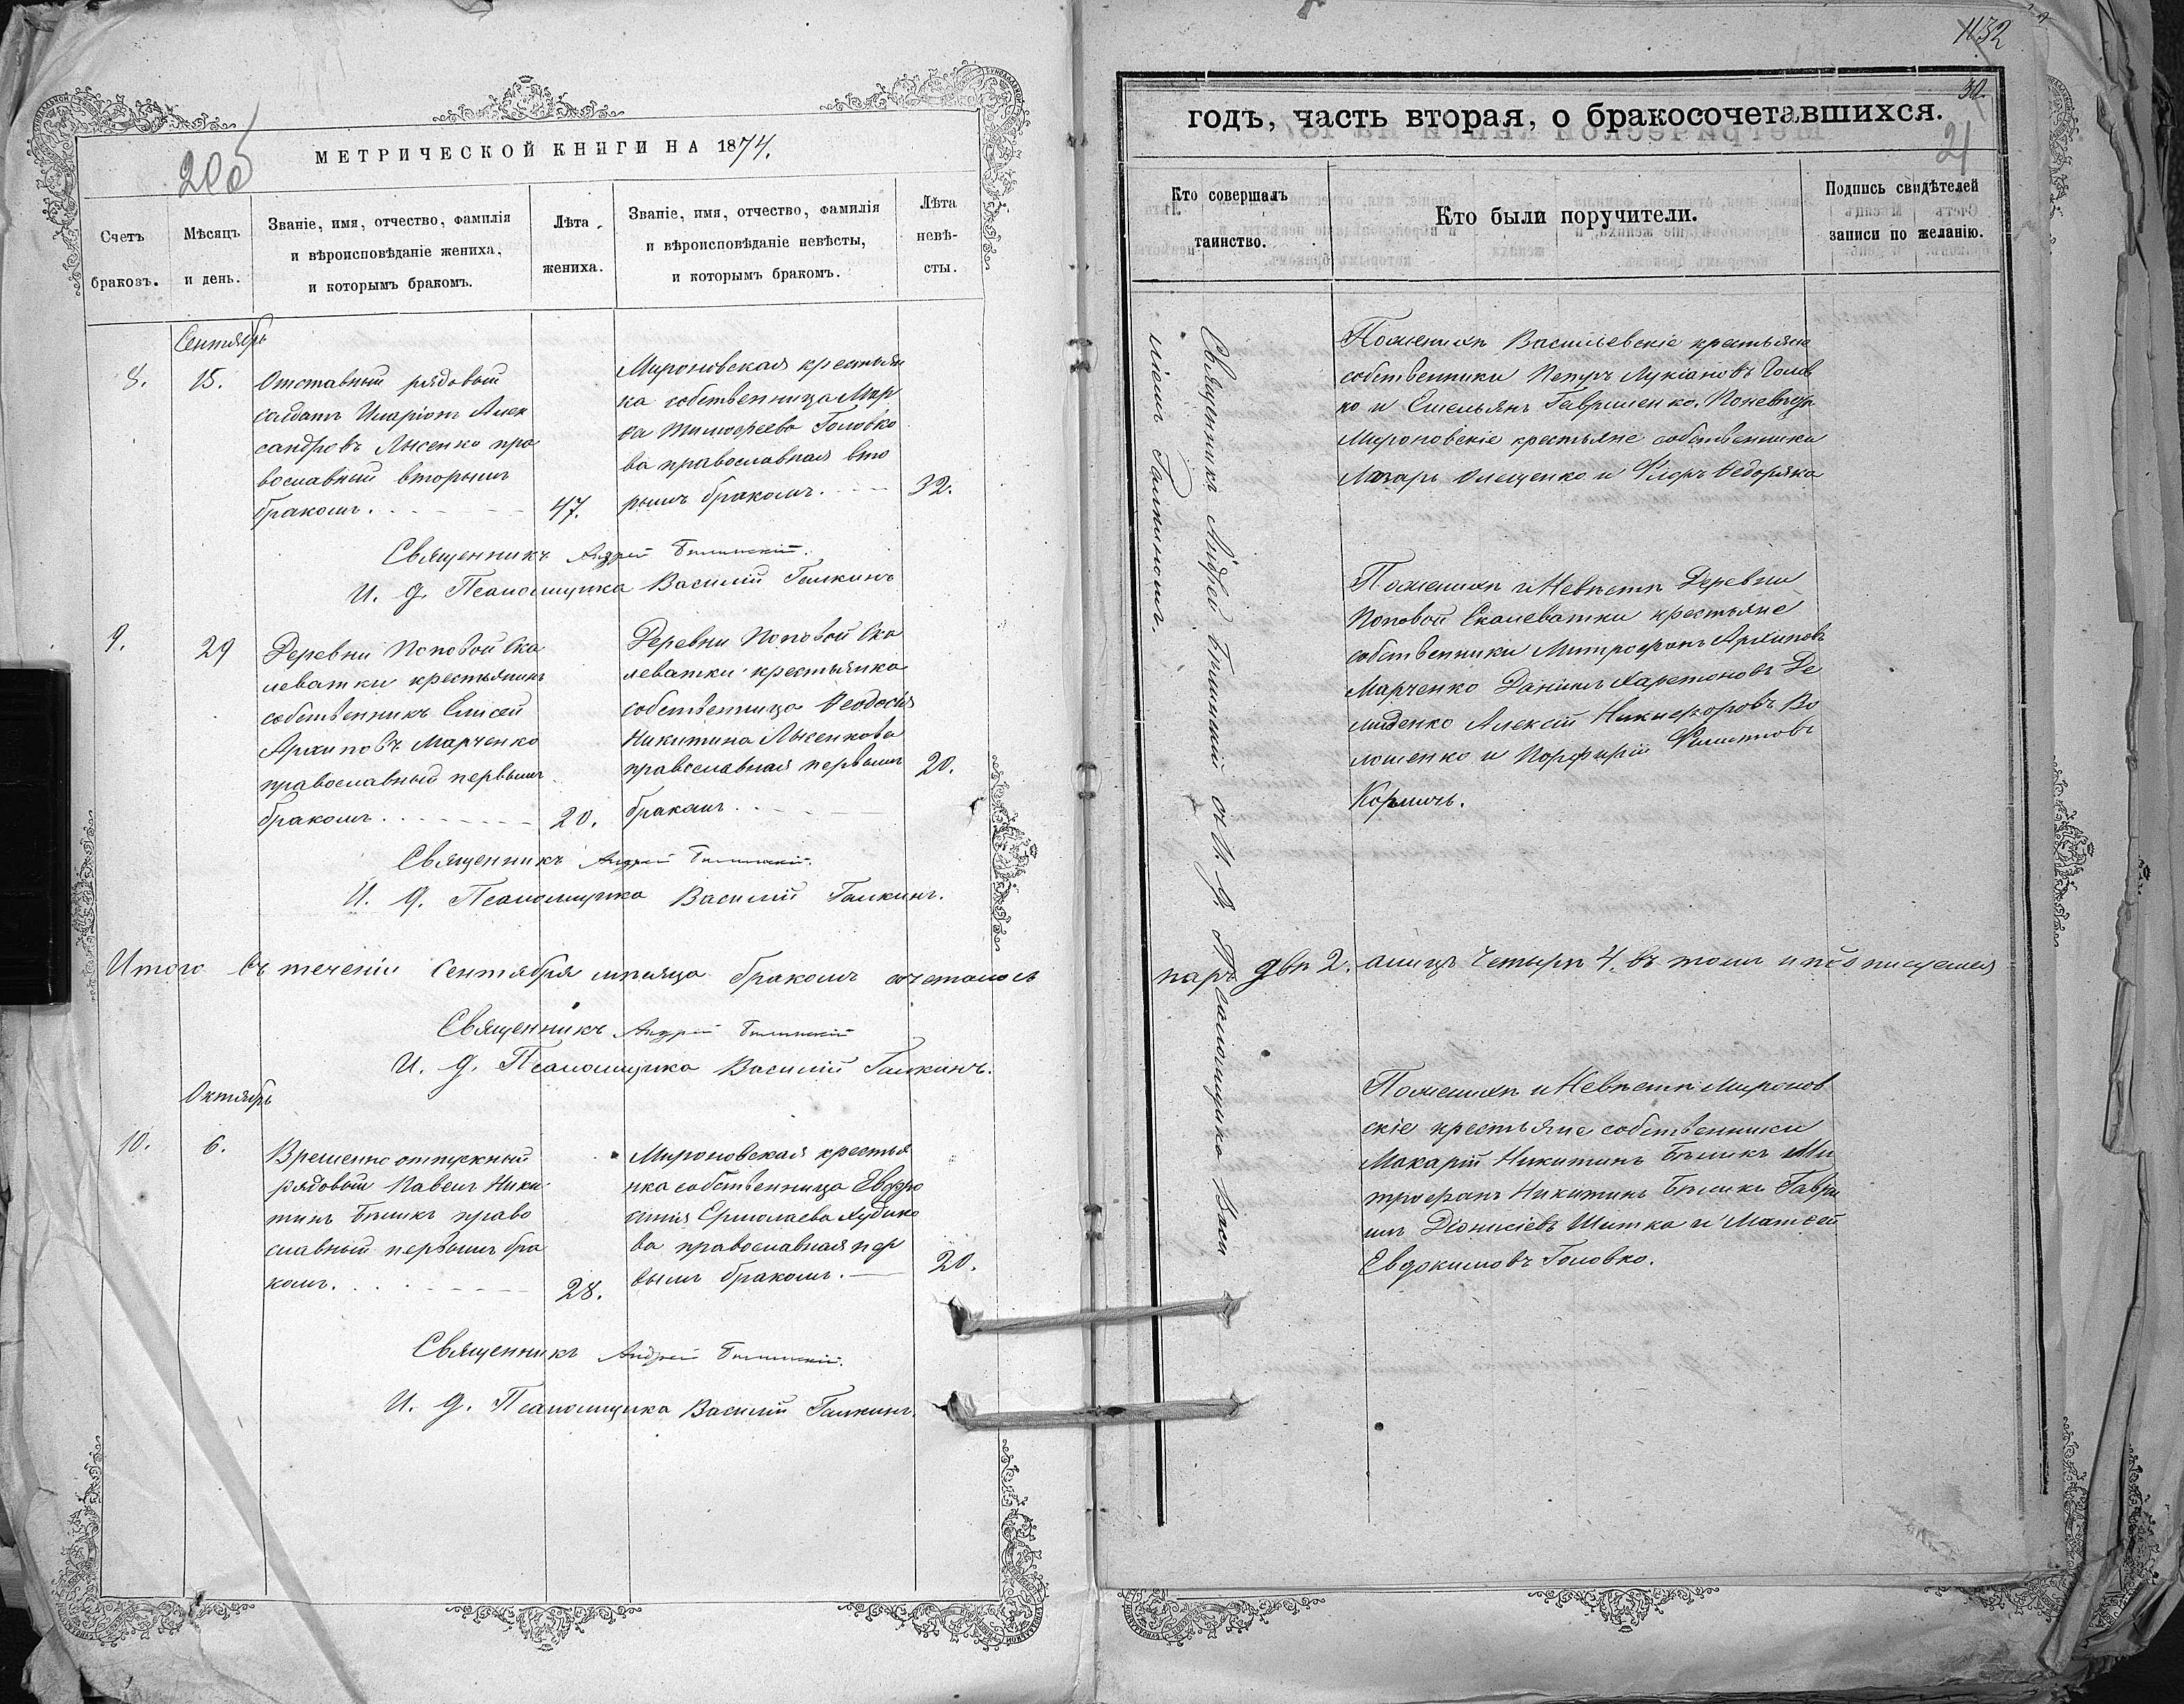 1132
30
21
205
МЕТРИЧЕСКОЙ КНИГИ НА 1874.
Счетъ
браковъ.
Мѣсяцъ
и день.
Званіе, имя, отчество, фамилія
и вѣроисповѣданіе жениха,
и которымъ бракомъ.
Лѣта
жениха.
Званіе, имя, отчество, фамилія
и вѣроисповѣданіе невѣсты,
и которымъ бракомъ.
Лѣта
невѣ-
сты.
Сентябрь
8.
15.
Отставный рядовый
солдатъ Иларіонъ Алек
сандровъ Лысенко пра
вославный вторымъ
бракомъ.
47.
Мироновская крестьян
ка собственница Мар
ѳа Тимоѳеева Головко
ва православная вто
рымъ бракомъ.
32.
Священникъ Андрей
И. д. Псаломщика Василій Галкинъ
9.
29
Деревни Поповой Ска
леватки крестьянинъ
собственникъ Елисей
Архиповъ Марченко
православный первымъ
бракомъ.
20.
Деревни Поповой Ска
леватки крестьянка
собственница Ѳеодосія
Никитина Лысенкова
православная первымъ
бракомъ.
20.
Священникъ Андрей
И. д. Псаломщика Василій Галкинъ.
Итого въ теченіи Сентября мѣсяца бракомъ сочеталось
Священникъ Андрей
И. д. Псаломщика Василій Галкинъ.
Октябрь
10.
6.
Временно отпускный
рядовый Павелъ Ники
тинъ Бѣликъ право
славный первымъ бра
комъ.
28.
Мироновская крестья
нка собственница Евфро
синія Ермолаева Худико
ва православная пер
вымъ бракомъ.
20.
Священникъ Андрей
И. д. Псаломщика Василій Галкинъ.
годъ, часть вторая, о бракосочетавшихся.
Кто совершалъ
таинство.
Кто были поручители.
Подпись свидѣтелей
записи по желанію.
Священникъ Андрей съ И. д. Псаломщика Васи
ліемъ Галкиномъ.
По женихѣ Васильевскіе крестьяне
собственники Петръ Лукіановъ Голов
ко и Емельянъ Гавриленко. По невѣстѣ
Мироновскіе крестьяне собственники
Лазарь Олещенко и Флоръ Ѳедоряка
По женихѣ и Невѣстѣ Деревни
Поповой Скалеватки крестьяне
собственники Митрофанъ Архиповъ
Марченко Даніилъ Харитоновъ Де
миденко Алексій Никифоровъ Во
лошенко и Порфирій Филиповъ
Кормичъ.
паръ двѣ 2. а лицъ Четыре 4. въ томъ и подписуемся
По женихѣ и Невѣстѣ Миронов
скіе крестьяне собственники
Макарій Никитинъ Бѣликъ Ми
трофанъ Никитинъ Бѣликъ Гаврі
илъ Діонисіевъ Шитка и Матѳей
Евдокимовъ Головко.